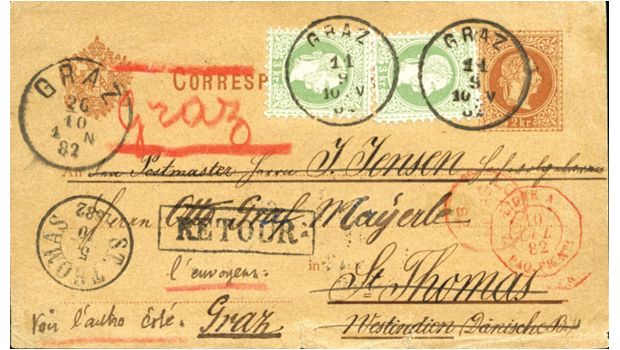 GRAZ
11
9
10 V
82
GRAZ
11
9
10 V
82
GRAZ
26
10
1 N
82
CORRESP
3 kr.
3 kr.
2 kr.
Graz
An den Postmaster Herrn J. Jensen
Herrn Otto Graf Mayerle
RETOUR
ST. THOMAS
5
10
1882
LIGNE A
82
PAQ. FR. No
l'envoyeur
in
St Thomas
Voir l'autre côté. Graz
Westindien (Dänische B.)